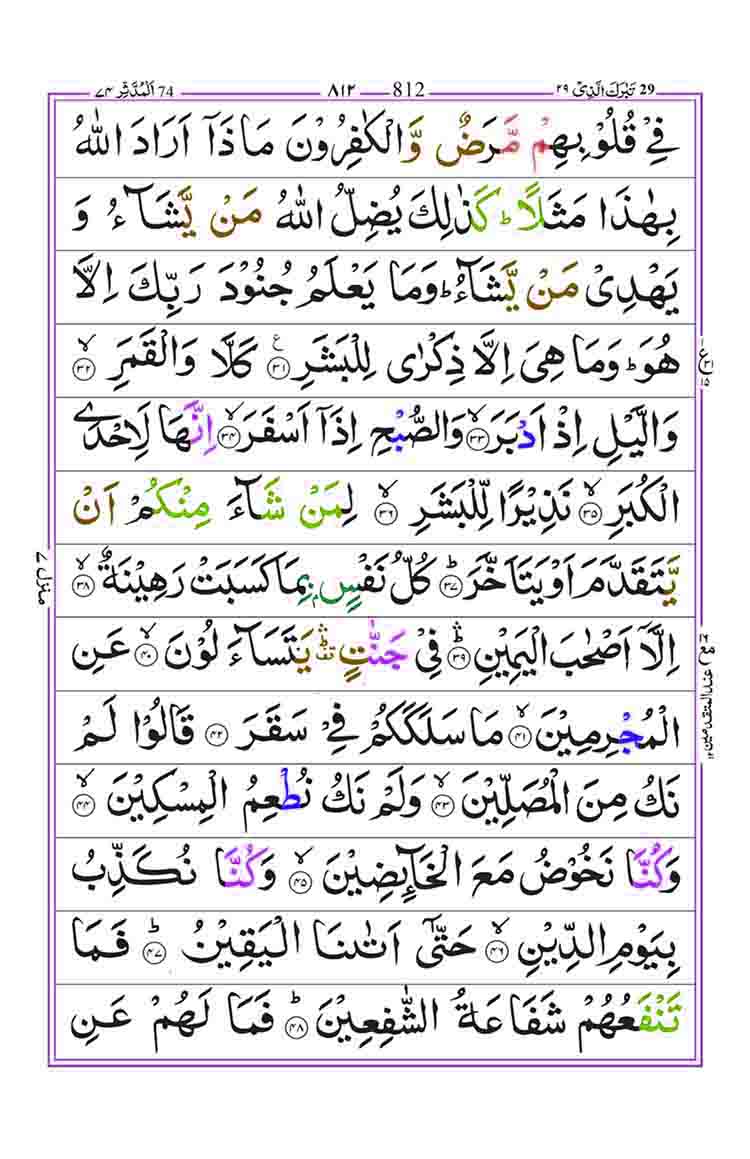 29 تَبٰرَكَ الَّذِىْ ٢٩
812 ٨١٢
74 اَلْمُدَّثِّر ٧٤
فِىْ قُلُوْبِهِمْ مَّرَضٌ وَّالْكٰفِرُوْنَ مَاذَاۤ اَرَادَ اللّٰهُ
بِهٰذَا مَثَلًاؕ كَذٰلِكَ يُضِلُّ اللّٰهُ مَنْ يَّشَآءُ وَ
يَهْدِىْ مَنْ يَّشَآءُؕ وَمَا يَعْلَمُ جُنُوْدَ رَبِّكَ اِلَّا
هُوَؕ وَمَا هِىَ اِلَّا ذِكْرٰى لِلْبَشَرِ ٣١ كَلَّا وَالْقَمَرِۙ ٣٢
وَالَّيْلِ اِذْ اَدْبَرَۙ ٣٣ وَالصُّبْحِ اِذَاۤ اَسْفَرَۙ ٣٤ اِنَّهَا لَاِحْدَى
الْكُبَرِۙ ٣٥ نَذِيْرًا لِّلْبَشَرِۙ ٣٦ لِمَنْ شَآءَ مِنْكُمْ اَنْ
يَّتَقَدَّمَ اَوْ يَتَاَخَّرَؕ ٣٧ كُلُّ نَفْسٍۭ بِمَا كَسَبَتْ رَهِيْنَةٌۙ ٣٨
اِلَّاۤ اَصْحٰبَ الْيَمِيْنِؕۛ ٣٩ فِىْ جَنّٰتٍؕۛ يَتَسَآءَلُوْنَۙ ٤٠ عَنِ
الْمُجْرِمِيْنَۙ ٤١ مَا سَلَكَكُمْ فِىْ سَقَرَ ٤٢ قَالُوْا لَمْ
نَكُ مِنَ الْمُصَلِّيْنَۙ ٤٣ وَلَمْ نَكُ نُطْعِمُ الْمِسْكِيْنَۙ ٤٤
وَكُنَّا نَخُوْضُ مَعَ الْخَآئِضِيْنَۙ ٤٥ وَكُنَّا نُكَذِّبُ
بِيَوْمِ الدِّيْنِۙ ٤٦ حَتّٰىۤ اَتٰٮنَا الْيَقِيْنُؕ ٤٧ فَمَا
تَنْفَعُهُمْ شَفَاعَةُ الشّٰفِعِيْنَؕ ٤٨ فَمَا لَهُمْ عَنِ
ع
١٥
عند المتقدمين ١٢
منزل ٧